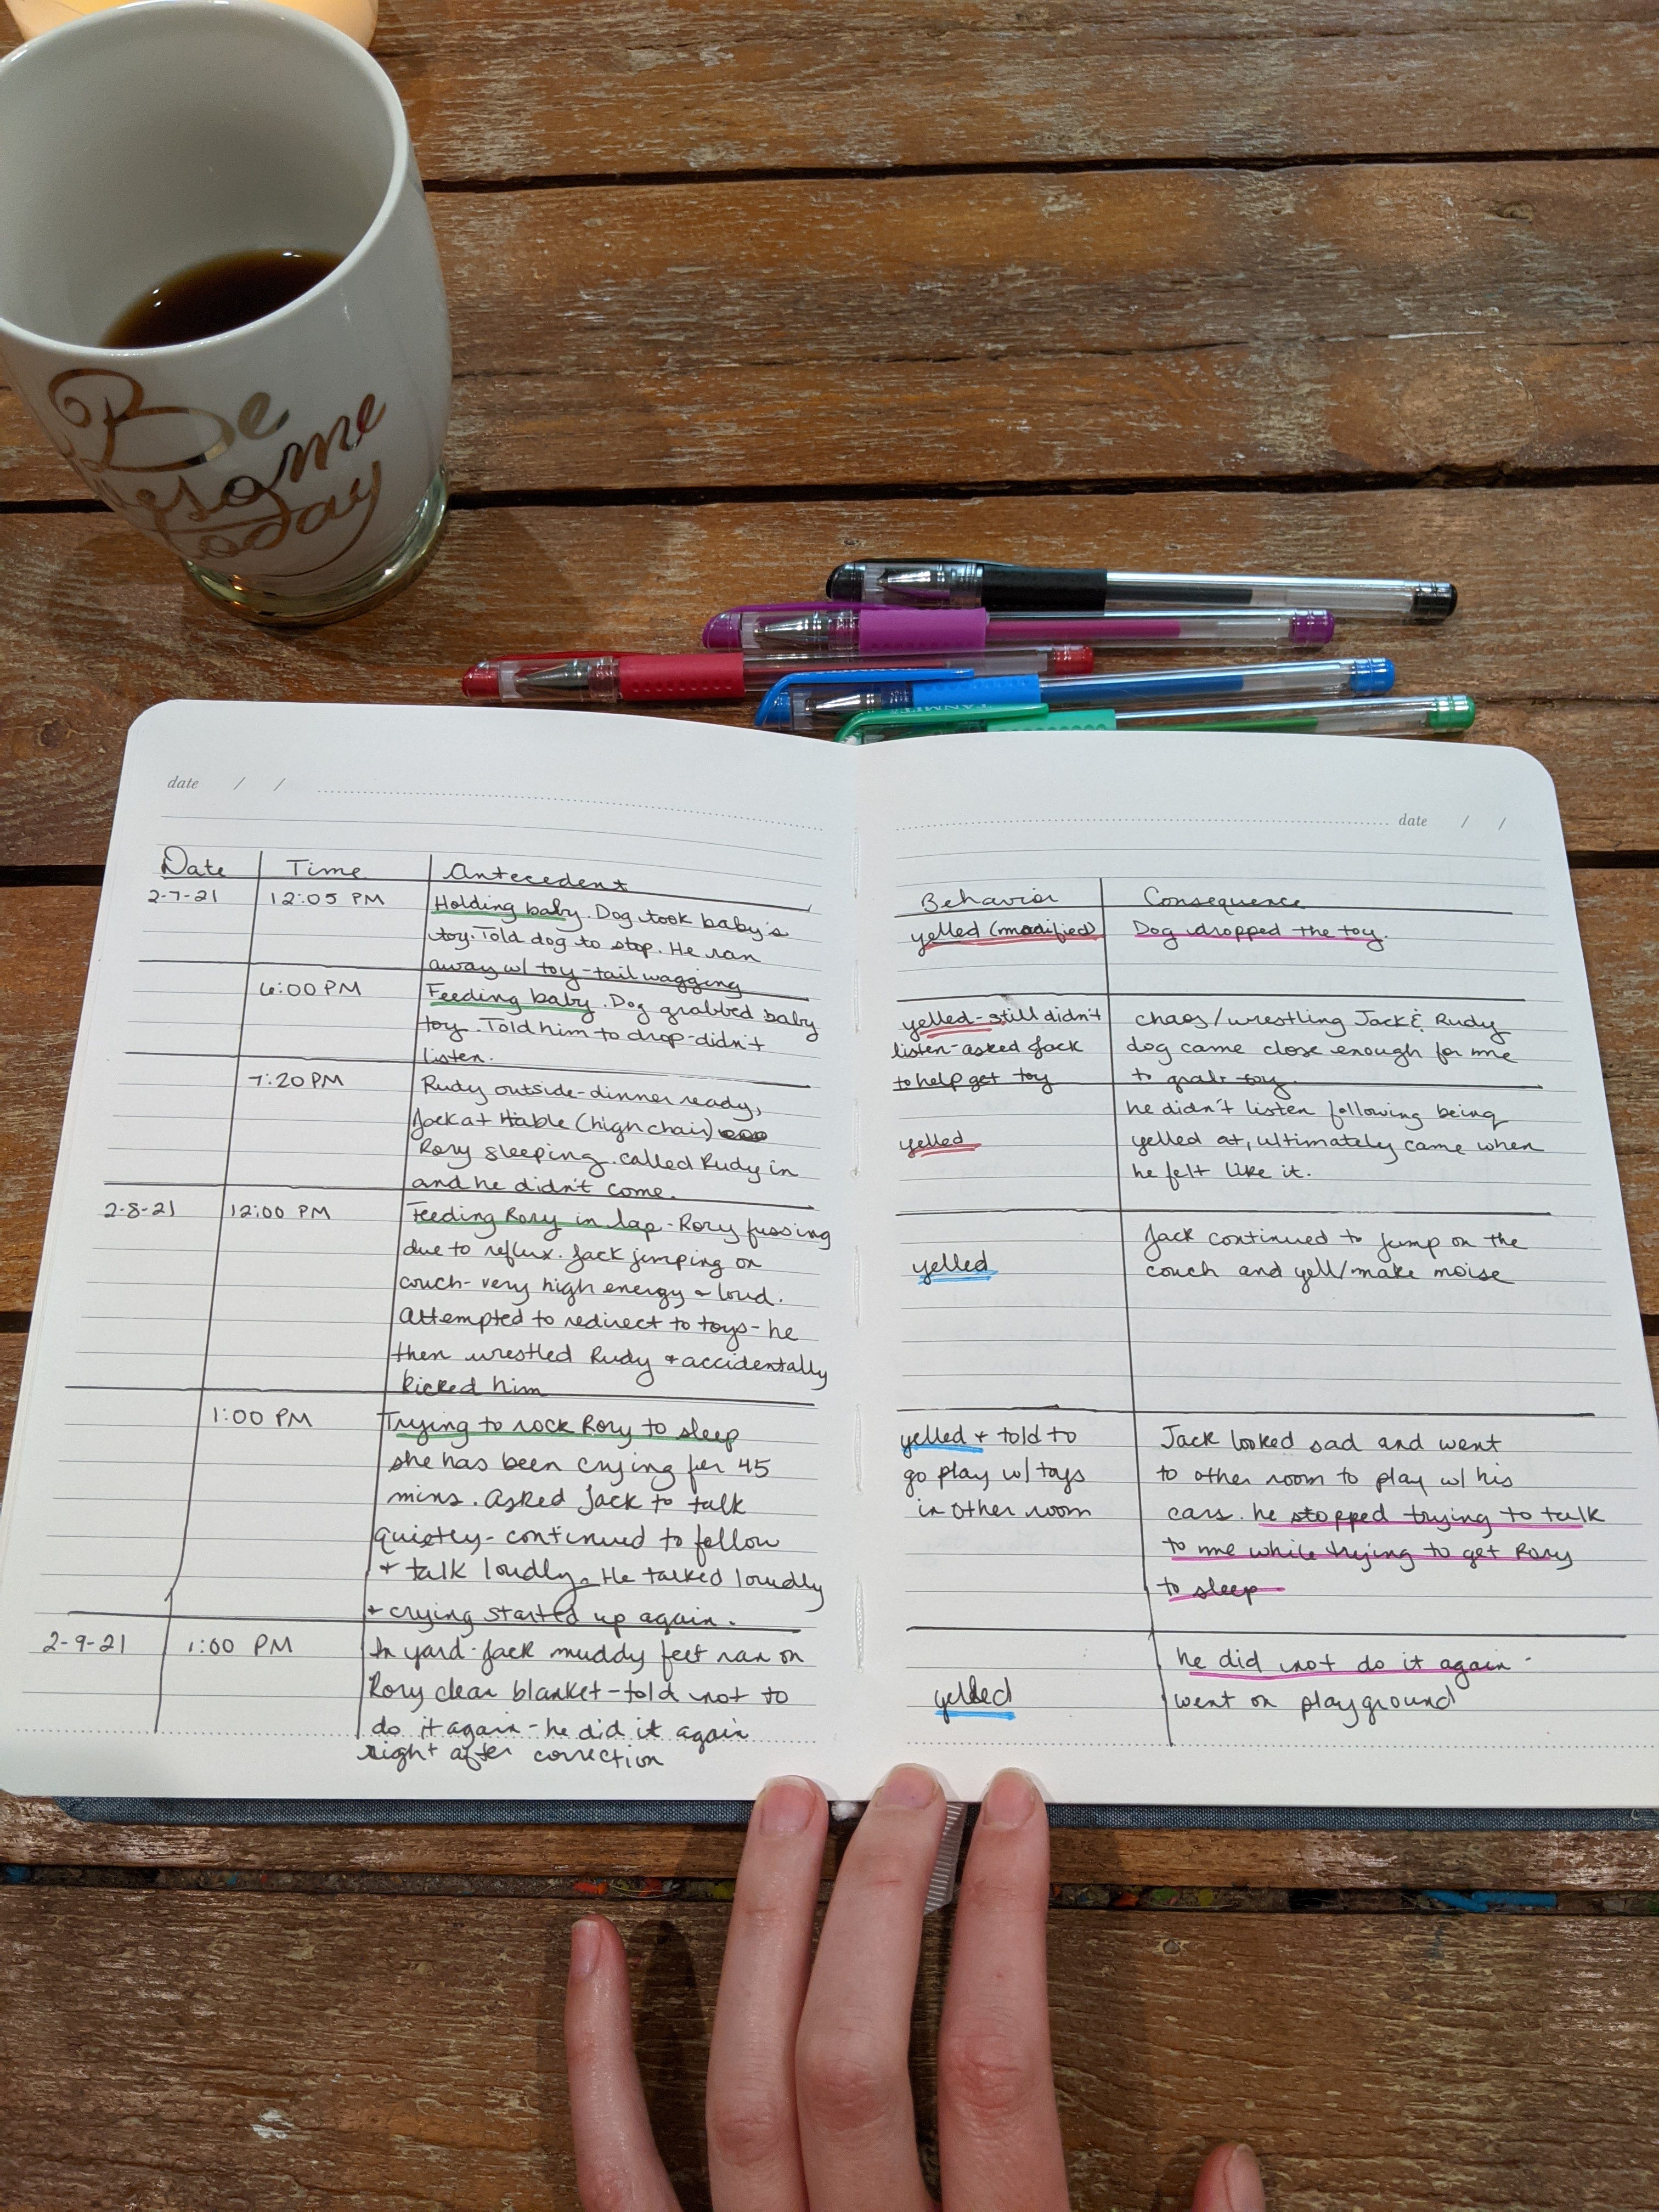 Be
awesome
today
TANMIT
date / /
date / /
Date Time Antecedent
2-7-21 12:05 PM Holding baby. Dog took baby's
toy. Told dog to stop. He ran
away w/ toy - tail wagging
6:00 PM Feeding baby. Dog grabbed baby
toy. Told him to drop - didn't
listen.
7:20 PM Rudy outside - dinner ready,
Jack at table (high chair)
Rory sleeping. called Rudy in
and he didn't come.
2-8-21 12:00 PM Feeding Rory in lap - Rory fussing
due to reflux. Jack jumping on
couch - very high energy + loud.
Attempted to redirect to toys - he
then wrestled Rudy + accidentally
kicked him
1:00 PM Trying to rock Rory to sleep
she has been crying for 45
mins. Asked Jack to talk
quietly - continued to follow
+ talk loudly. He talked loudly
+ crying started up again.
2-9-21 1:00 PM In yard - Jack muddy feet ran on
Rory clean blanket - told not to
do it again - he did it again
right after correction
Behavior Consequence
yelled (modified) Dog dropped the toy.
yelled - still didn't chaos/wrestling Jack & Rudy
listen - asked Jack dog came close enough for me
to help get toy to grab toy.
he didn't listen following being
yelled yelled at, ultimately came when
he felt like it.
Jack continued to jump on the
yelled couch and yell/make noise
yelled + told to Jack looked sad and went
go play w/ toys to other room to play w/ his
in other room cars. he stopped trying to talk
to me while trying to get Rory
to sleep
he did not do it again -
yelled went on playground